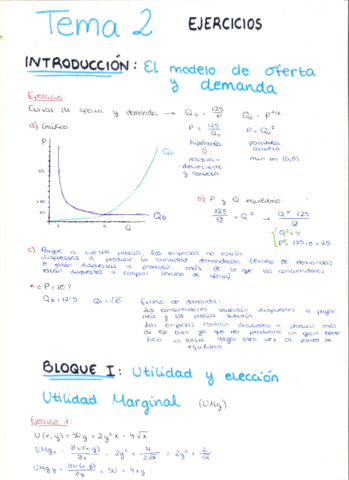 Tema 2 EJERCICIOS
INTRODUCCIÓN: El modelo de oferta
y demanda
Ejercicio:
Curvas de oferta y demanda → Q_D = 125/P Q_O = P^1/2
a) Gráfico
P = 125/Q_D P = Q_O²
hipérbola parábola
convexa
positiva -
decreciente
y convexa
mín en (0,0)
P
Q_O
Q_D
Q
b) P y Q equilibrio:
125/Q = Q² → Q³ = 125
Q = 5
P = 125/5 = 25
c) Porque a ciertos precios, las empresas no están
dispuestas a producir la cantidad demandada (exceso de demanda)
o están dispuestas a producir más de lo que los consumidores
están dispuestos a comprar (exceso de oferta)
* ¿P = 10?
Q_D = 12'5 Q_O = √10 Exceso de demanda:
Los consumidores estarían dispuestos a pagar
más y los precios subirán.
Las empresas estarán dispuestas a producir más
de ese bien ya que les producirá un gran bene-
ficio hasta llegar otra vez al punto de
equilibrio
BLOQUE I: Utilidad y elección
Utilidad Marginal (UMg)
Ejercicio 1:
U(x,y) = 50y + 2y²x + 4√x
UMgx = ∂U(x,y)/∂x = 2y² + 4/2√x = 2y² + 2/√x
UMgy = ∂U(x,y)/∂y = 50 + 4xy